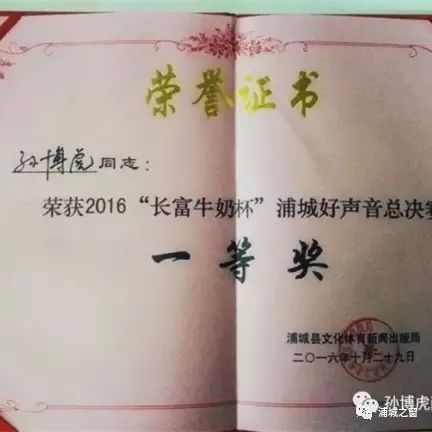 荣誉证书
孙博虎同志：
荣获2016“长富牛奶杯”浦城好声音总决赛
一等奖
浦城县文化体育新闻出版局
二〇一六年十月二十九日
孙博虎
浦城之窗